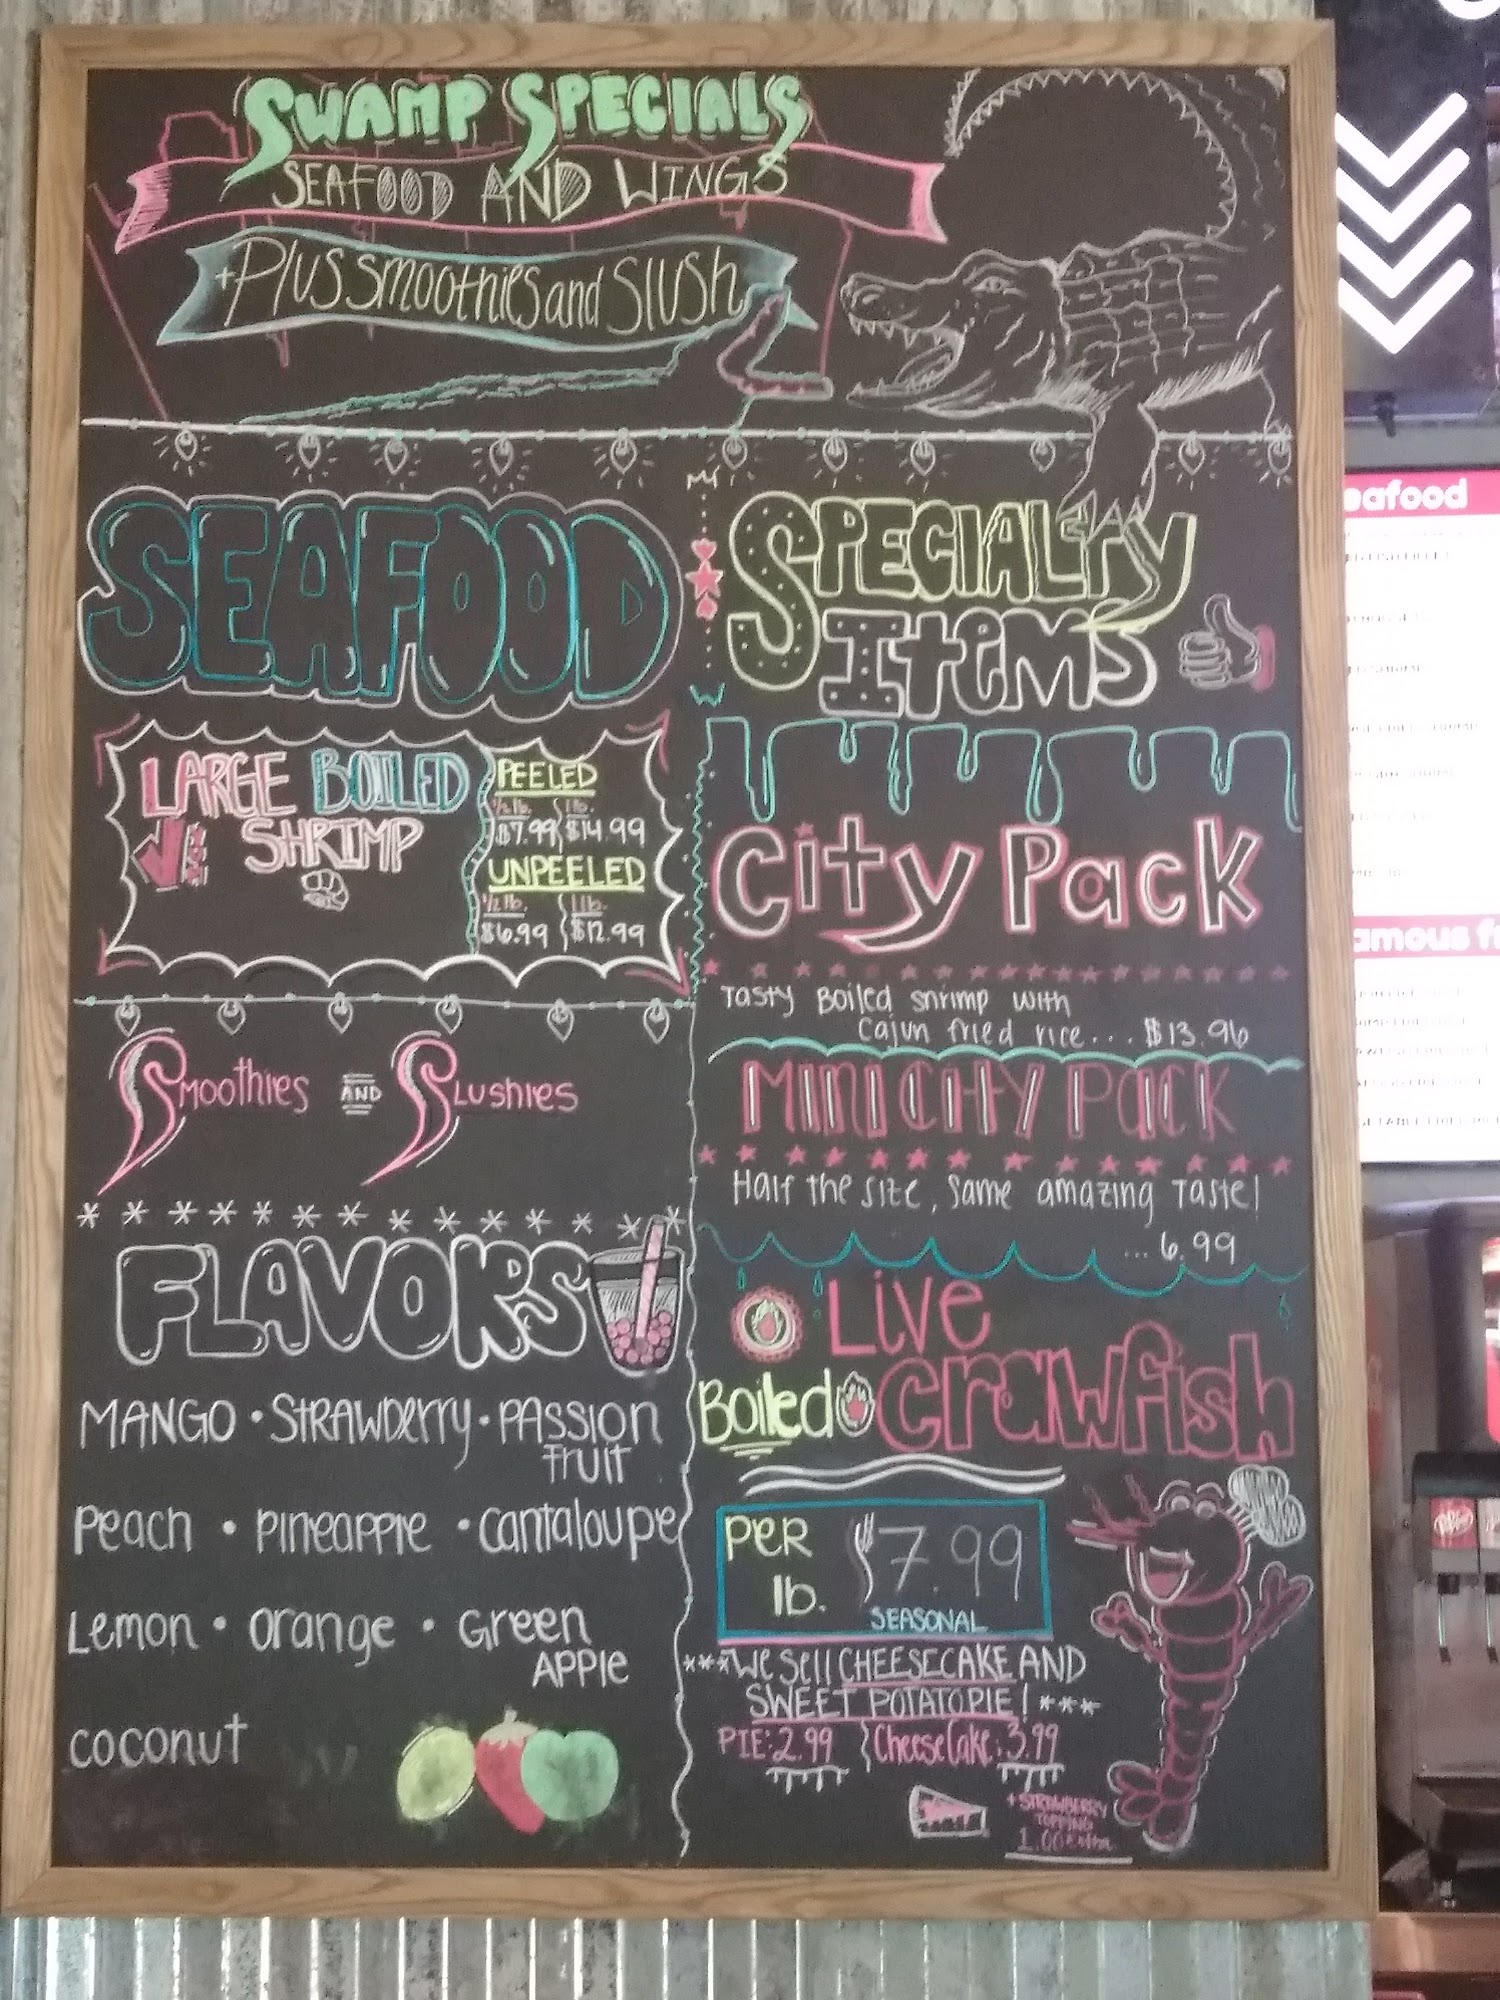 SWAMP SPECIALS
SEAFOOD AND WINGS
+Plus smoothies and Slush
SEAFOOD
LARGE BOILED
SHRIMP
PEELED
1/2 lb. 1 lb.
$7.99 $14.99
UNPEELED
1/2 lb. 1 lb.
$6.99 $12.99
Smoothies AND Slushies
FLAVORS
MANGO • STRAWBERRY • PASSION
FRUIT
Peach • Pineapple • Cantaloupe
Lemon • Orange • Green
Apple
Coconut
SPECIALTY
Items
City Pack
Tasty Boiled shrimp with
Cajun fried rice... $13.96
Mini City Pack
Half the size, same amazing taste!
... 6.99
Live
Boiled Crawfish
Per
lb. $7.99
SEASONAL
***We sell CHEESECAKE AND
SWEET POTATO PIE! ***
PIE: 2.99 CheeseCake: 3.99
+ STRAWBERRY
TOPPING
1.00 extra
eafood
amous f